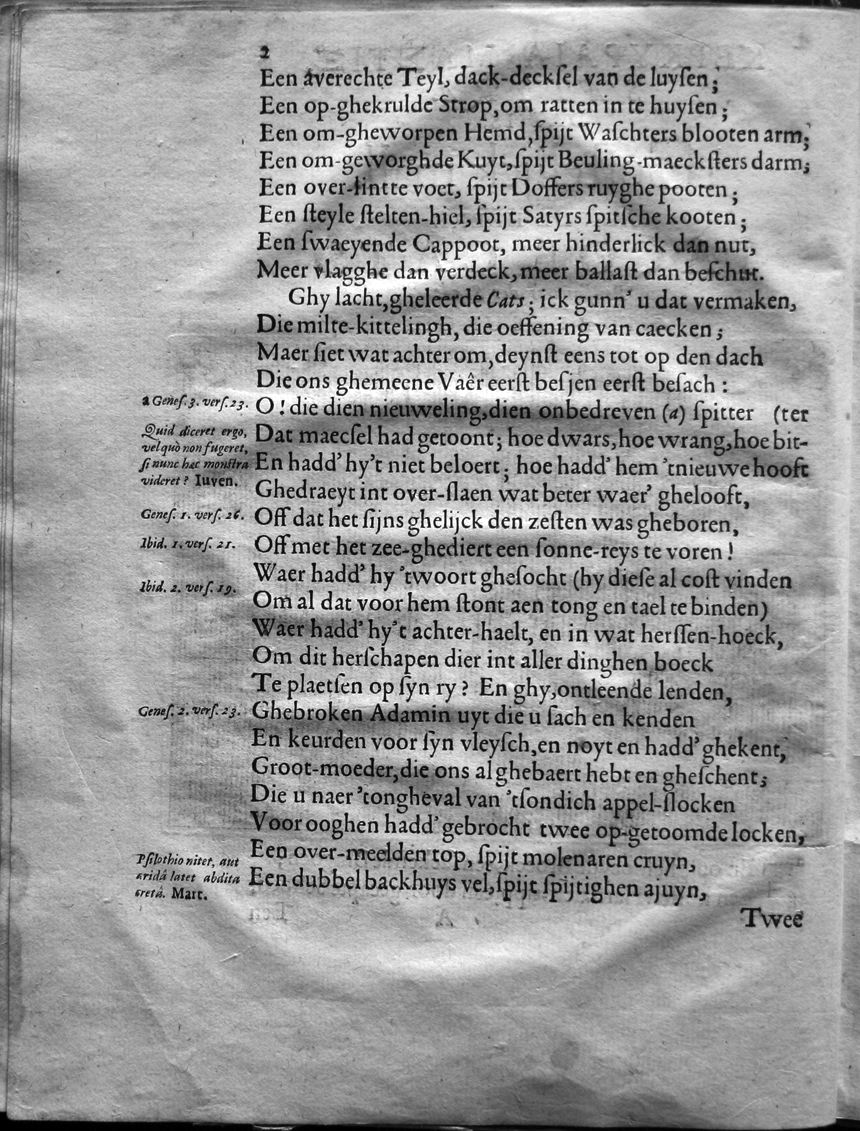 2
Een averechte Teyl, dack-deckſel van de luyſen;
Een op-ghekrulde Strop, om ratten in te huyſen;
Een om-gheworpen Hemd, ſpijt Waſchters blooten arm;
Een om-geworghde Kuyt, ſpijt Beuling-maeckſters darm;
Een over-lintte voet, ſpijt Doffers ruyghe pooten;
Een ſteyle ſtelten-hiel, ſpijt Satyrs ſpitſche kooten;
Een ſwaeyende Cappoot, meer hinderlick dan nut,
Meer vlagghe dan verdeck, meer ballaſt dan beſchut.
Ghy lacht, gheleerde Cats; ick gunn' u dat vermaken,
Die milte-kittelingh, die oeffening van caecken;
Maer ſiet wat achter om, deynſt eens tot op den dach
Die ons ghemeene Vaêr eerſt beſjen eerſt beſach:
a Geneſ. 3. verſ. 23.
O! die dien nieuweling, dien onbedreven (a) ſpitter (ter
Quid diceret ergo,
vel quò non fugeret,
ſi nunc hæc monſtra
videret? Iuven.
Dat maecſel had getoont; hoe dwars, hoe wrang, hoe bit-
En hadd' hy't niet beloert; hoe hadd' hem 'tnieuwe hooft
Ghedraeyt int over-ſlaen wat beter waer' ghelooft,
Geneſ. 1. verſ. 26.
Off dat het ſijns ghelijck den zeſten was gheboren,
Ibid. 1. verſ. 21.
Off met het zee-ghediert een ſonne-reys te voren!
Waer hadd' hy 'twoort gheſocht (hy dieſe al coſt vinden
Ibid. 2. verſ. 19.
Om al dat voor hem ſtont aen tong en tael te binden)
Waer hadd' hy't achter-haelt, en in wat herſſen-hoeck,
Om dit herſchapen dier int aller dinghen boeck
Te plaetſen op ſyn ry? En ghy, ontleende lenden,
Geneſ. 2. verſ. 23.
Ghebroken Adamin uyt die u ſach en kenden
En keurden voor ſyn vleyſch, en noyt en hadd' ghekent,
Groot-moeder, die ons al ghebaert hebt en gheſchent;
Die u naer 'tongheval van 'tſondich appel-ſlocken
Voor ooghen hadd' gebrocht twee op-getoomde locken,
Pſilothro nitet, aut
aridâ latet abdita
cretâ. Mart.
Een over-meelden top, ſpijt molenaren cruyn,
Een dubbel backhuys vel, ſpijt ſpijtighen ajuyn,
Twee